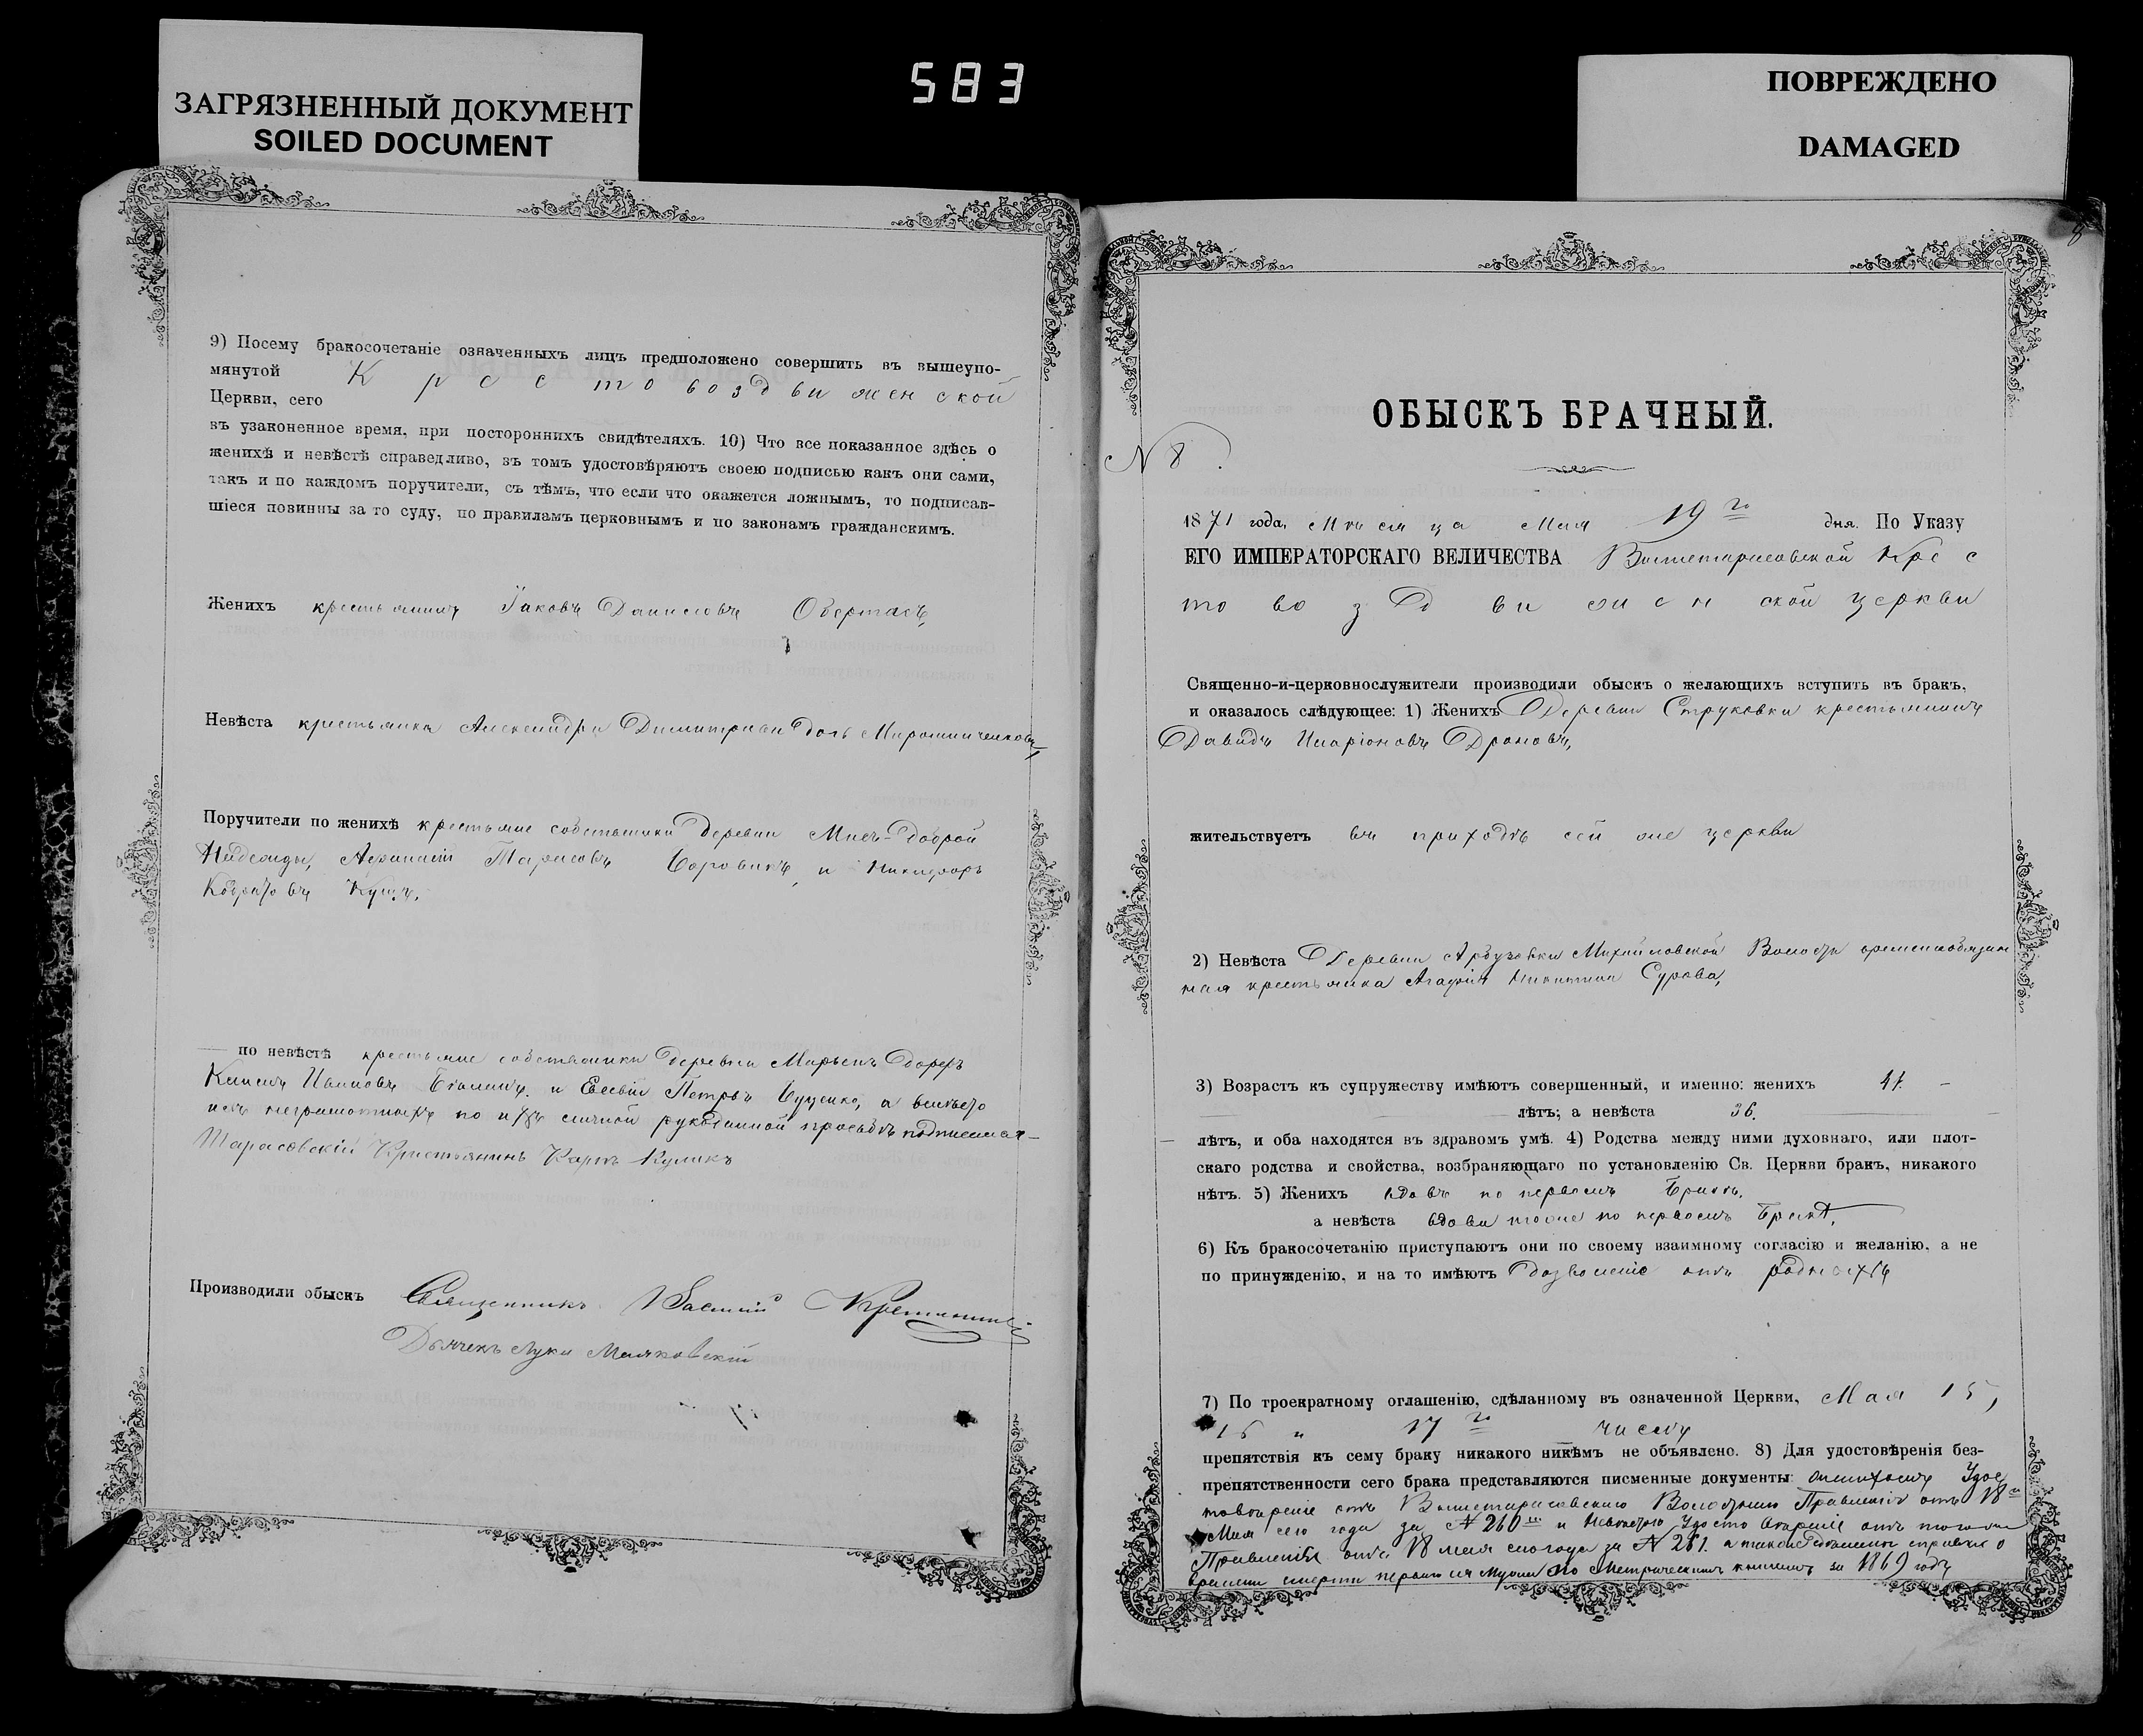 ЗАГРЯЗНЕННЫЙ ДОКУМЕНТ
SOILED DOCUMENT
583
ПОВРЕЖДЕНО
DAMAGED
9) Посему бракосочетаніе означенныхъ лицъ предположено совершить въ вышеупо-
мянутой Крестовоздвиженской
Церкви, сего
въ узаконенное время, при постороннихъ свидѣтеляхъ. 10) Что все показанное здѣсь о
женихѣ и невѣстѣ справедливо, въ томъ удостовѣряютъ своею подписью какъ они сами,
такъ и по каждомъ поручители, съ тѣмъ, что если что окажется ложнымъ, то подписав-
шіеся повинны за то суду, по правиламъ церковнымъ и по законамъ гражданскимъ.
Женихъ крестьянинъ Іаковъ Даниловъ Обертасъ,
Невѣста крестьянка Александра Димитріева дочь Мирошниченкова,
Поручители по женихѣ крестьяне собственники деревни Мисъ-Доброй
Надежды, Аѳанасій Тарасовъ Боровикъ, и Никифоръ
Кущъ.
по невѣстѣ крестьяне собственники деревни Марьенъ Дореръ
Ивановъ и Евсевій Петровъ Буценко, а вмѣсто
ихъ неграмотныхъ по ихъ личной рукоданной прозьбѣ подписался
Тарасовскій Крестьянинъ Карпъ Куликъ
Производили обыскъ Священникъ Василій
Дьячекъ Лука Маляковскій
8
ОБЫСКЪ БРАЧНЫЙ.
N 8.
1871 года, Мѣсяца Мая 19го дня. По Указу
ЕГО ИМПЕРАТОРСКАГО ВЕЛИЧЕСТВА Вышетарасовской Крес
товоздвиженской церкви
Священно-и-церковнослужители производили обыскъ о желающихъ вступить въ бракъ,
и оказалось слѣдующее: 1) Женихъ Деревни Струковки крестьянинъ
Давидъ Иларіоновъ Дроновъ,
жительствуетъ въ приходѣ сей же церкви
2) Невѣста Деревни Арбузовки Михайловской Волости временнообязан
ная крестьянка Агафія Никитина Сурова,
3) Возрастъ къ супружеству имѣютъ совершенный, и именно: женихъ 41.
лѣтъ; а невѣста 36.
лѣтъ, и оба находятся въ здравомъ умѣ. 4) Родства между ними духовнаго, или плот-
скаго родства и свойства, возбраняющаго по установленію Св. Церкви бракъ, никакого
нѣтъ. 5) Женихъ вдовъ по первомъ бракѣ,
а невѣста вдова тоже по первомъ бракѣ,
6) Къ бракосочетанію приступаютъ они по своему взаимному согласію и желанію, а не
по принужденію, и на то имѣютъ дозволеніе отъ родныхъ
7) По троекратному оглашенію, сдѣланному въ означенной Церкви, Мая 15,
16 и 17го числъ
препятствія къ сему браку никакого никѣмъ не объявлено. 8) Для удостовѣренія без-
препятственности сего брака представляются писменные документы: женихомъ Удос
товѣреніе отъ Вышетарасовскаго Волостнаго Правленія отъ 18го
Мая сего года за N 260м и невѣстою Удостовѣреніе отъ того же
Правленія отъ 18 мая сего года за N 261. а также сдѣлана справка о
времени смерти перваго ея мужа по Метрическимъ книгамъ за 1869 годъ